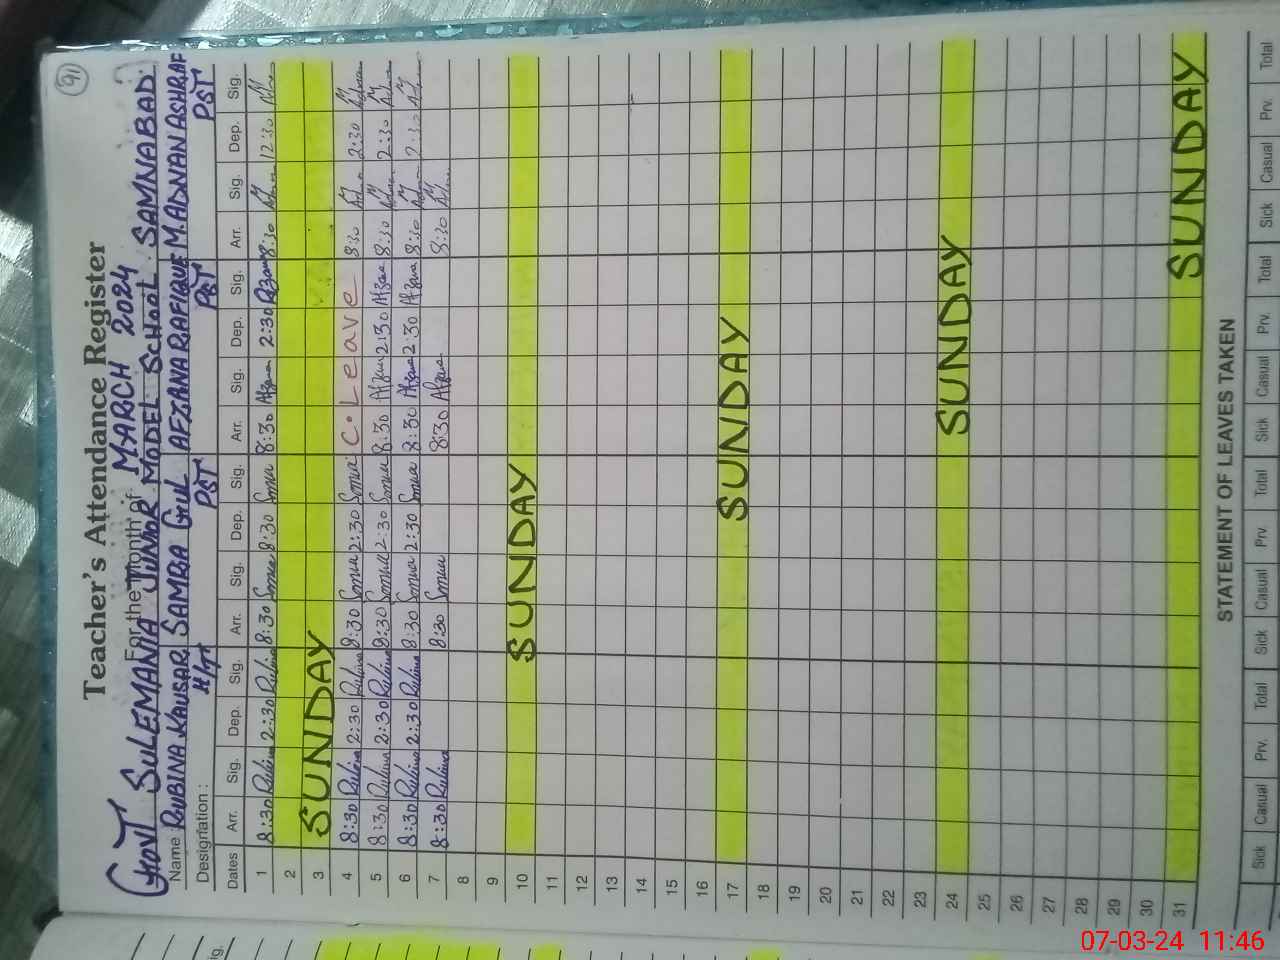 91
Teacher's Attendance Register
For the Month of MARCH 2024
GOVT SULEMANIA JUNIOR MODEL SCHOOL SAMNABAD
Name RUBINA KAUSAR SAMRA GUL AFZANA RAFIQUE M.ADNAN ASHRAF
Designation : H/TT PST PST PST
Dates Arr. Sig. Dep. Sig. Arr. Sig. Dep. Sig. Arr. Sig. Dep. Sig. Arr. Sig. Dep. Sig.
1 8:30 Rubina 2:30 Rubina 8:30 8:30 8:30 2:30 8:30 12:30
2
3 SUNDAY
4 8:30 Rubina 2:30 Rubina 8:30 2:30 C. Leave 8:30 2:30
5 8:30 Rubina 2:30 Rubina 8:30 2:30 8:30 2:30 8:30 2:30
6 8:30 Rubina 2:30 Rubina 8:30 2:30 8:30 2:30 8:30 2:30
7 8:30 Rubina 8:30 8:30 8:30
8
9
10 SUNDAY
11
12
13
14
15
16
17 SUNDAY
18
19
20
21
22
23
24 SUNDAY
25
26
27
28
29
30
31 SUNDAY
STATEMENT OF LEAVES TAKEN
Sick Casual Prv. Total Sick Casual Prv. Total Sick Casual Prv. Total Sick Casual Prv. Total
07-03-24 11:46